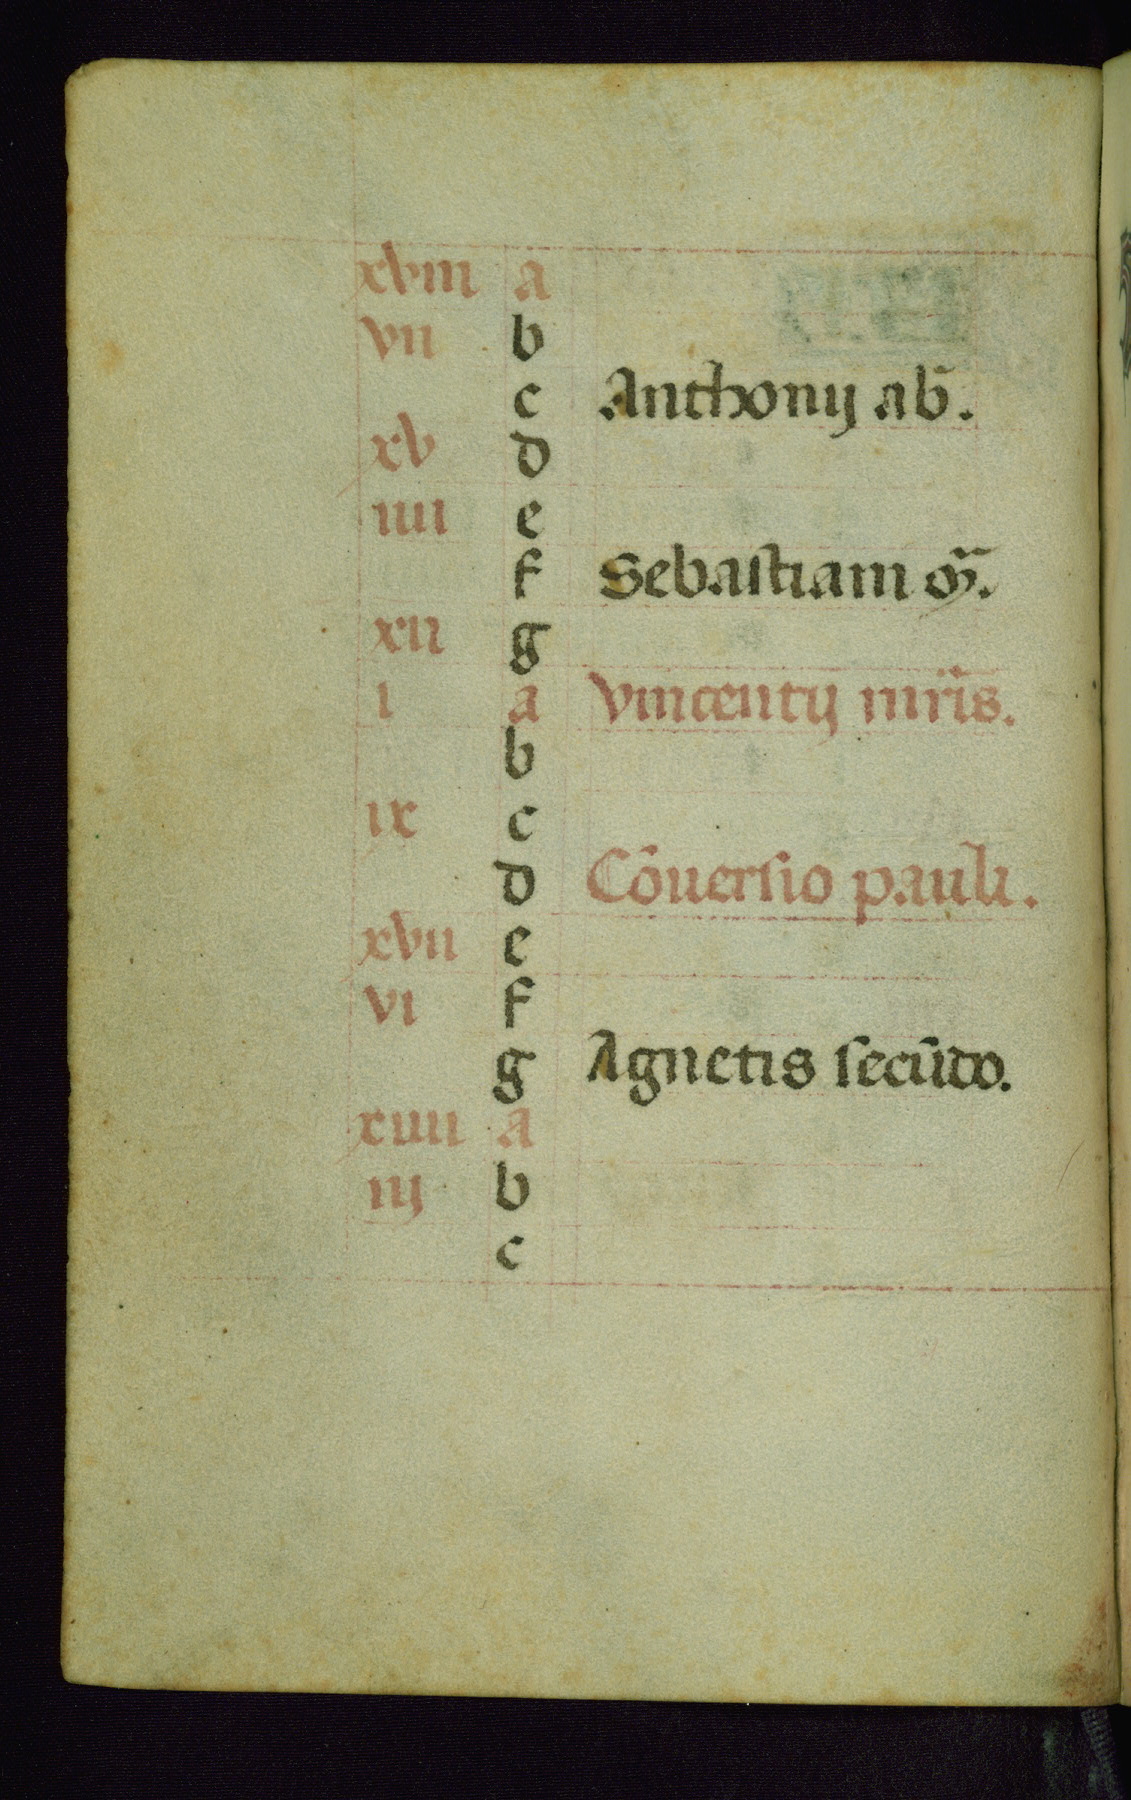 xviii a
vii b
c Anthonij ab̄.
xv d
iiii e
f Sebastiani m̄.
xii g
i a Vincentij mr̄is.
b
ix c
d Cōuersio pauli.
xvii e
vi f
g Agnetis secūdo.
xiiii a
iij b
c